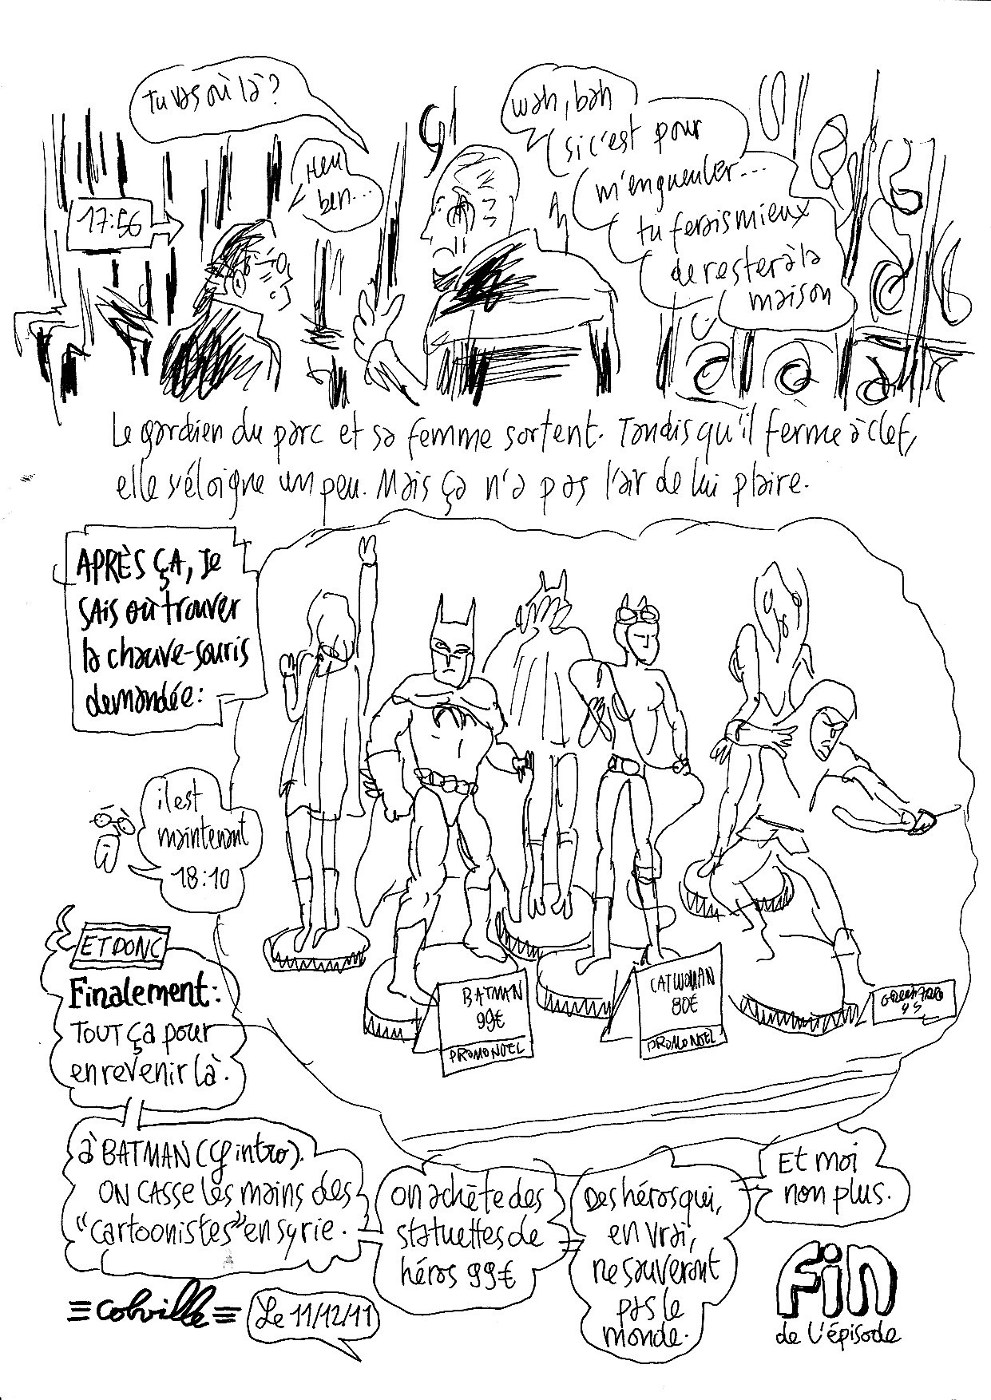 tu vas où là ?
Heu
ben...
17:56
wah, bah
si c'est pour
m'engueuler...
tu ferais mieux
de rester à la
maison
Le gardien du parc et sa femme sortent. Tandis qu'il ferme à clef,
elle s'éloigne un peu. Mais ça n'a pas l'air de lui plaire.
APRÈS ÇA, Je
SAIS où trouver
la chauve-souris
demandée :
il est
maintenant
18:10
BATMAN
99€
PROMO NOEL
CATWOMAN
80€
PROMO NOEL
ET DONC
Finalement :
TOUT ça pour
en revenir là.
à BATMAN (cf intro).
ON CASSE les mains des
"cartoonistes" en syrie.
on achète des
statuettes de
héros 99€
Des héros qui,
en vrai,
ne sauveront
pas le
monde.
Et moi
non plus.
Colville
Le 11/12/11
Fin
de l'épisode